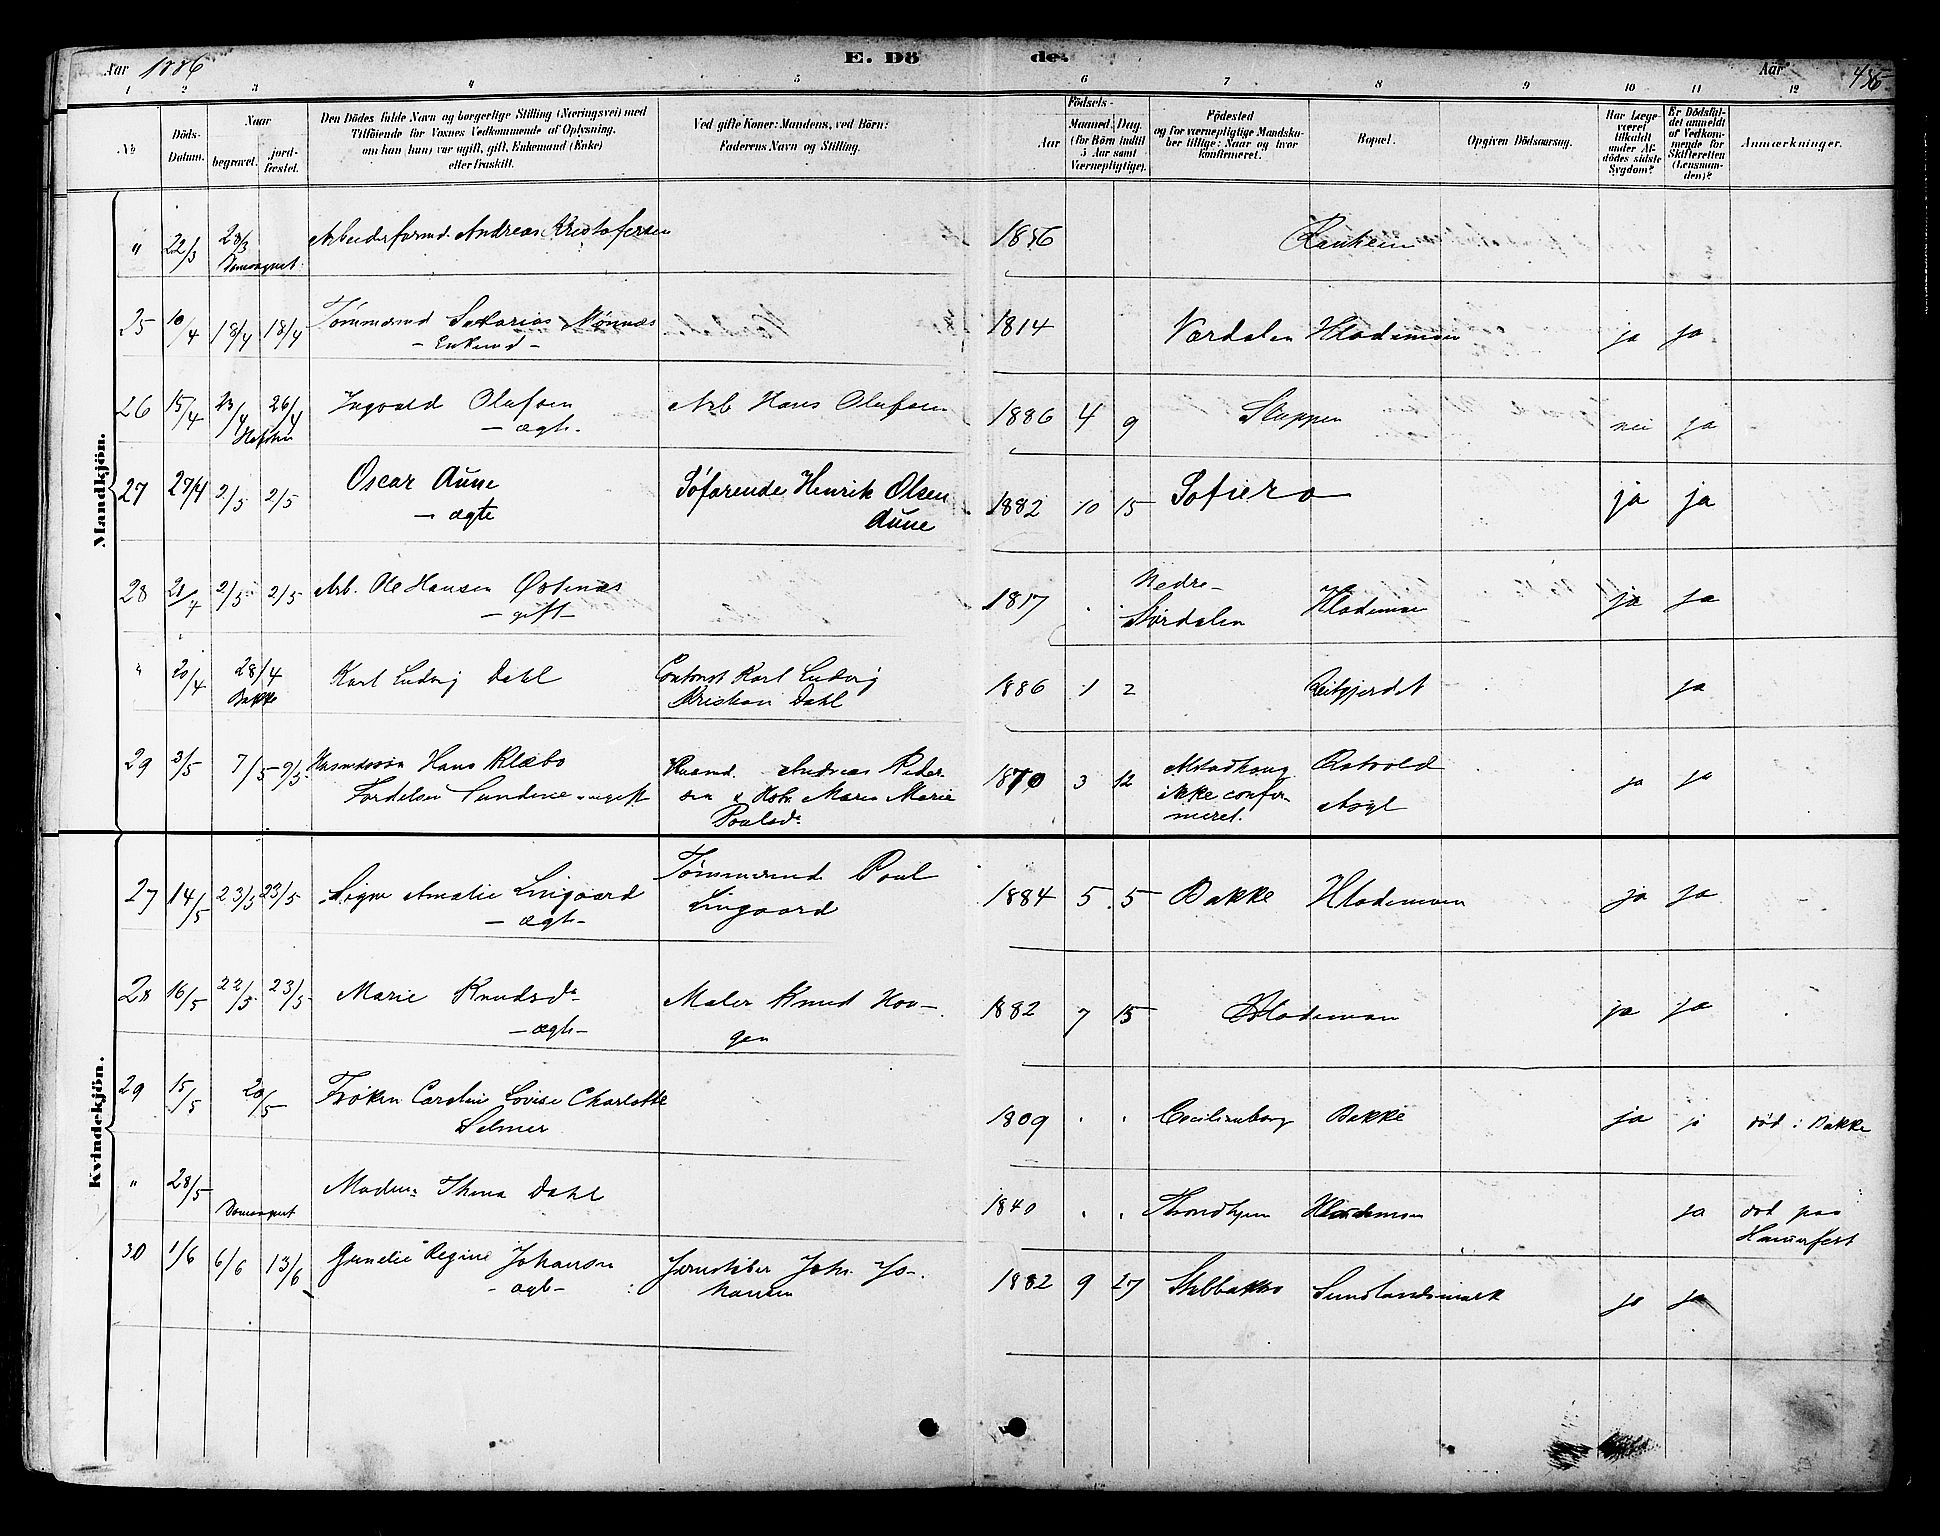 Aar 1886 E. Dö de. Aar 435
1 2 3 4 5 6 7 8 9 10 11 12
№
Döds-Datum.
Naar
begravet.
jordfæstet.
Den Dödes fulde Navn og borgerlige Stilling (Næringsvei) med
Tilföiende for Voxnes Vedkommende af Oplysning,
om han (hun) var ugift, gift, Enkemand (Enke)
eller fraskilt.
Ved gifte Koner: Mandens, ved Börn:
Faderens Navn og Stilling.
Födsels-
Aar
Maaned. Dag.
(for Börn indtil
5 Aar samt
Værnepligtige).
Födested
og for værnepligtige Mandskaber tillige: Naar og hvor
konfirmeret.
Bopæl.
Opgiven Dödsaarsag.
Har Læge
været
tilkaldt
under Afdödes sidste
Sygdom?
Er Dödsfaldet anmeldt
af Vedkommende for
Skifteretten
(Lensmanden)?
Anmærkninger.
Mandkjön.
" 22/3 28/3 Arbeiderformd. Andreas Kristofersen 1856 Ranheim
25 10/4 18/4 18/4 Tømmermd Sakarias Mønnæs 1814 Værdalen Hlademoen ja ja
- Enkemd -
26 15/4 23/4 26/4 Ingvald Olafsen Arb Hans Olafsen 1886 4 9 Sluppen nei ja
- ægte -
27 27/4 2/5 2/5 Oscar Aune Søfarende Henrik Olsen 1882 10 15 Sofiero ja ja
- ægte Aune
28 28/4 2/5 2/5 Arb. Ole Hansen Østnæs 1817 Nedre-
- gift - Størdalen Hlademoen ja ja
" 20/4 28/4 Karl Ludvig Dahl Contorist Karl Ludvig 1886 1 2 Reitgjerdet ja
Bakke Kristian Dahl
29 3/5 7/5 9/5 Hans Klæbo Huusmd. Andreas Peder- 1870 3 12 Alstadhoug Østvold ja ja
ugift sen & Hstr. Maren Marie ikke confir- Asyl
Poulsdr. meret.
Kvindekjön.
27 14/5 23/5 23/5 Signe Amalie Lingaard Tømmermd Poul 1884 5 5 Bakke Hlademoen ja ja
- ægte - Lingaard
28 16/5 22/5 23/5 Marie Knudsdr Maler Knud Hou- 1882 7 15 Hlademoen ja ja
- ægte - gen
29 15/5 20/5 Frøken Caroline Lovise Charlotte 1809 Ceciliaborg Bakke ja ja død i Bakke
Selmer
" 28/5 Madm. Thina Dahl 1840 Trondhjem Hlademoen ja død paa
Hammerfest
30 1/6 6/6 13/6 Regine Johansen Joh. Jo- 1882 9 27 Stubbakken ja ja
- ægte - hansen